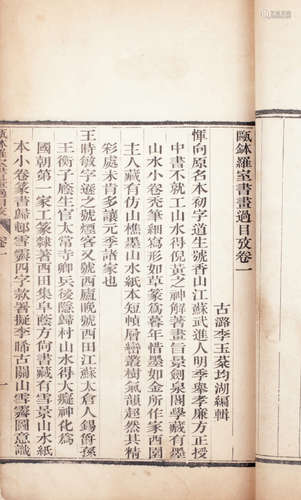 甌鉢羅室書畫過目攷卷一
古潞李玉棻均湖編輯
惲向原名本初字道生號香山江蘇武進人明季舉孝廉方正授
中書不就工山水得倪黃之神解著畫旨景劍泉閣學藏有墨
山水小卷禿筆細寫形如草篆為暮年惜墨如金所作家西園
主人藏有仿山樵墨山水紙本短幀層巒叢樹氣韻超然其精
彩處未肯多讓元季諸家也
王時敏字遜之號煙客又號西廬晚號西田江蘇太倉人錫爵孫
王衡子廕生官太常寺卿兵後隱歸村山水得大癡神化為
國朝第一家工篆隸著西田集阜蔭方尚書藏有雪景山水紙
本小卷篆書歸邨雪霽四字款署擬晞古關山雪霽圖意識
甌鉢羅室書畫過目攷 卷一